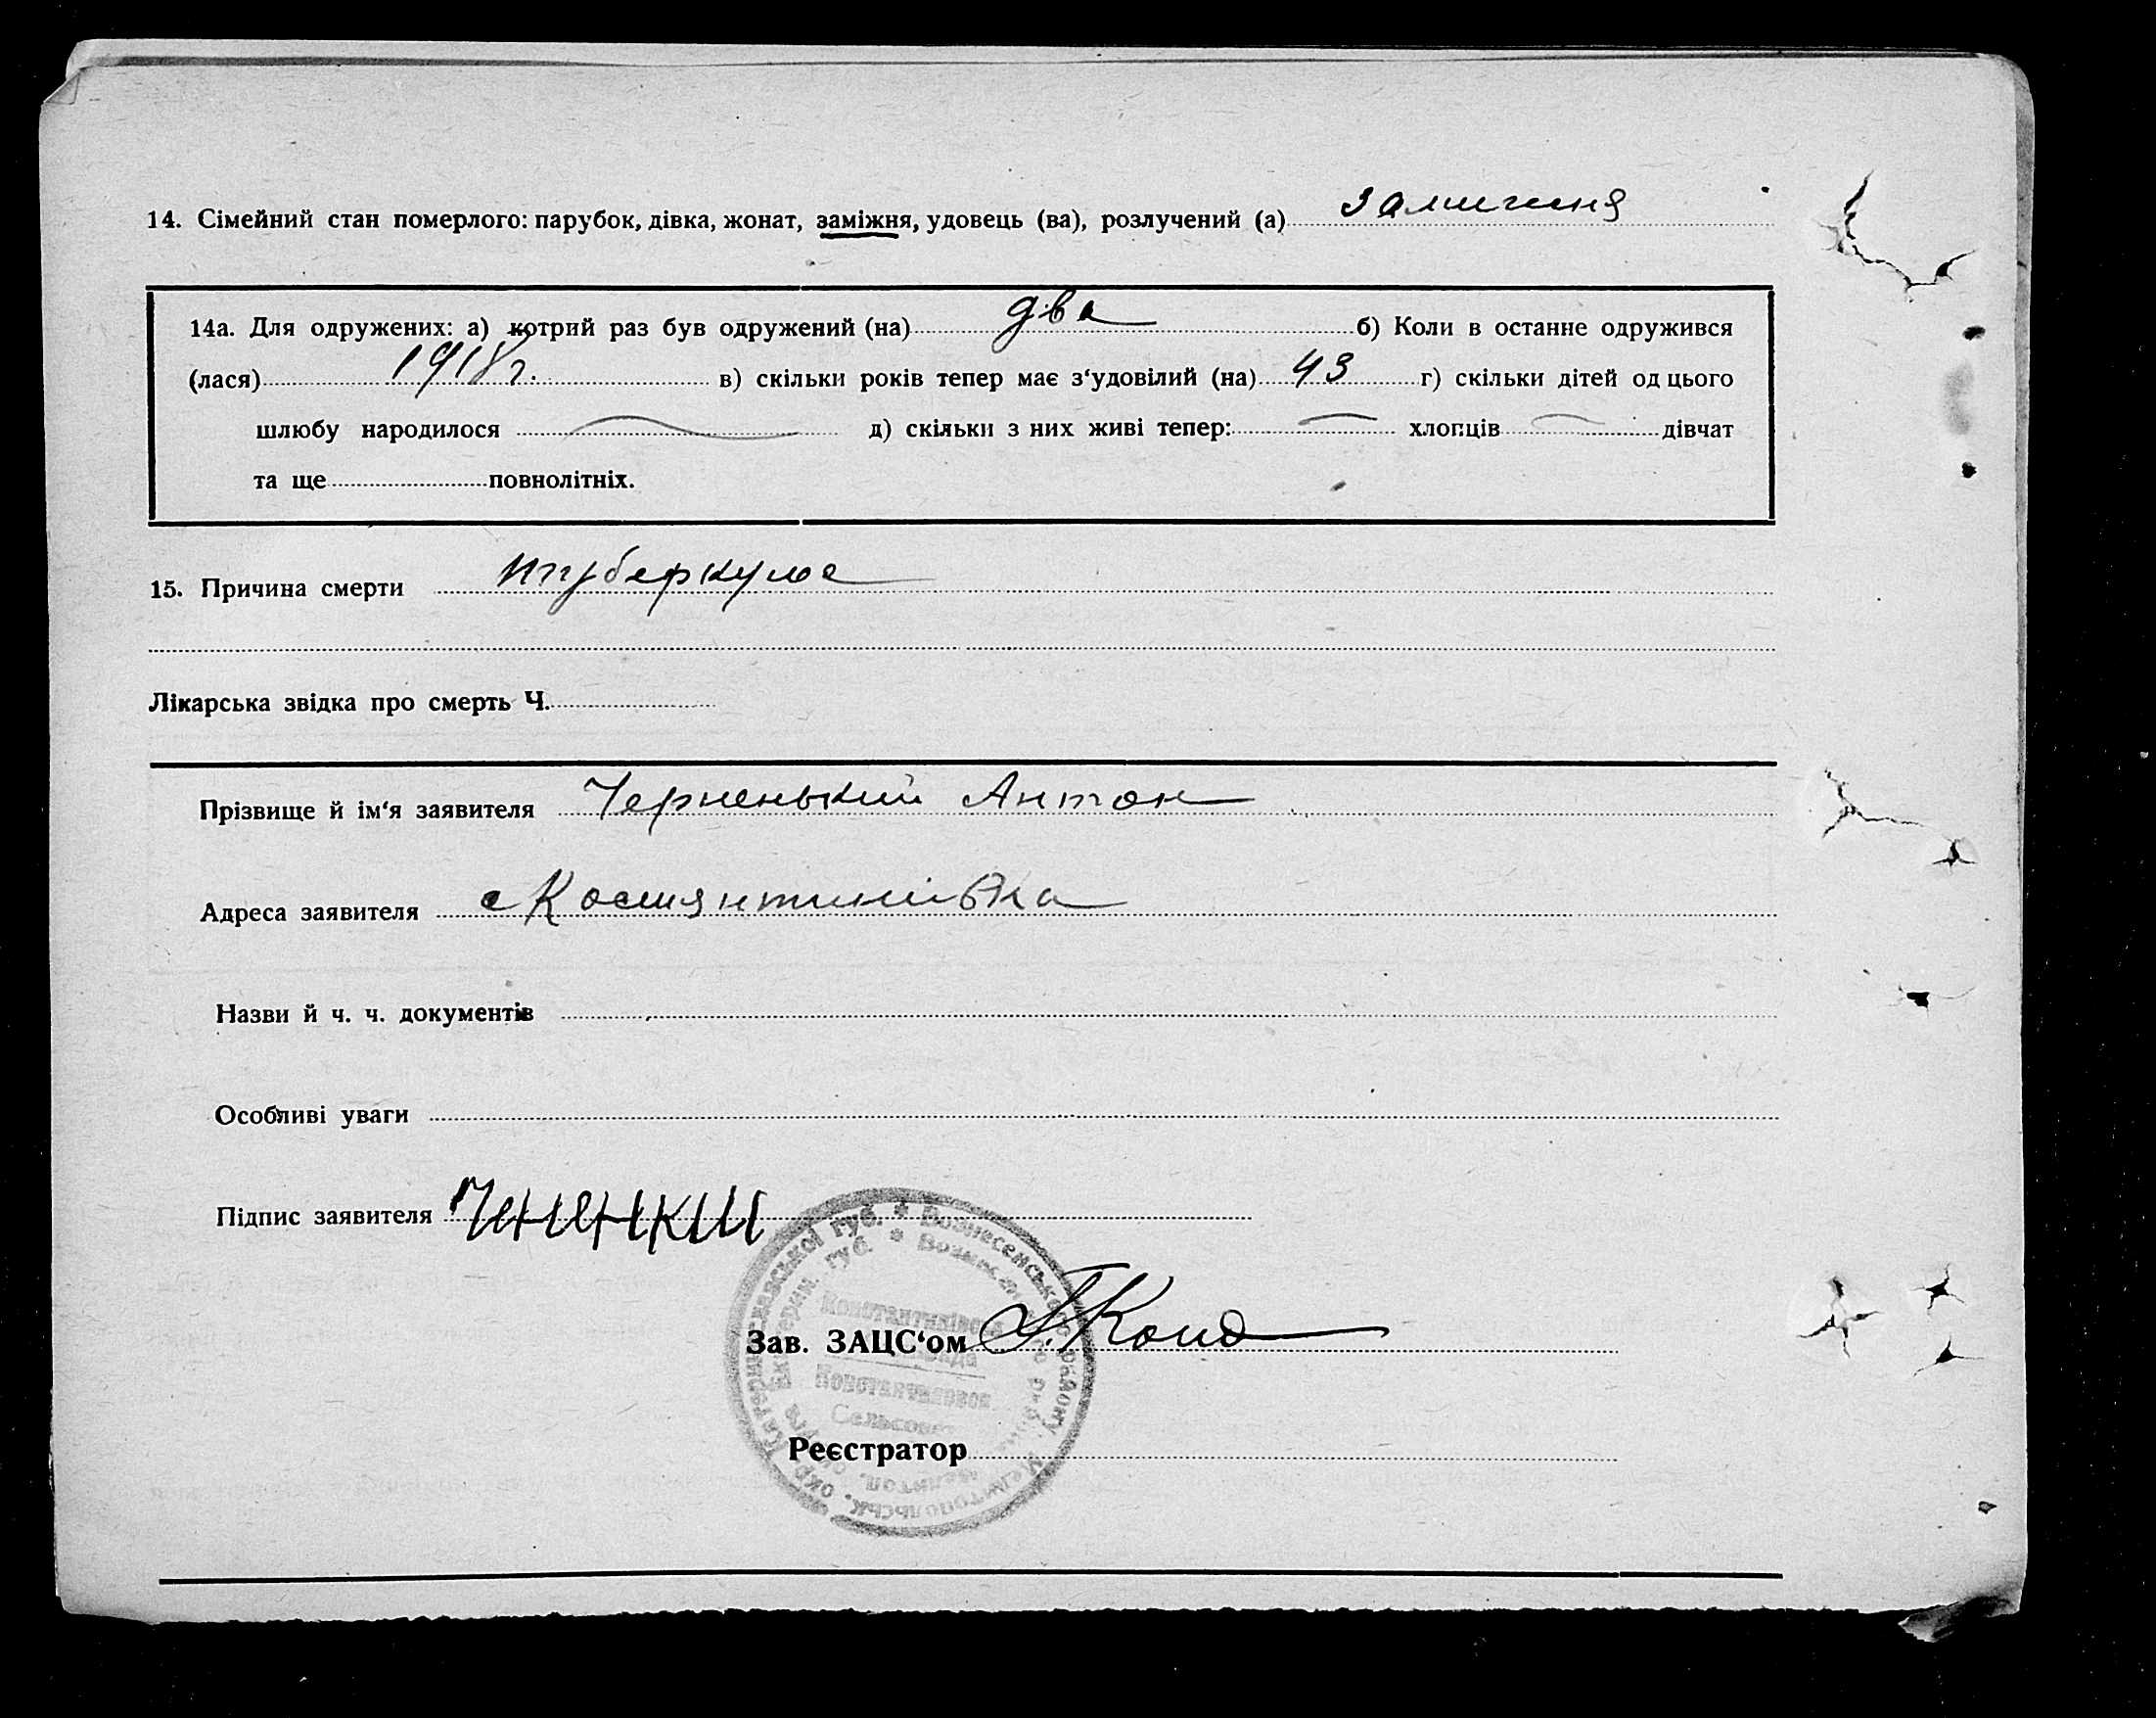 14. Сімейний стан померлого: парубок, дівка, жонат, заміжня, удовець (ва), розлучений (а) замижня
14а. Для одружених: а) котрий раз був одружений (на) два б) Коли в останне одружився
(лася) 1918 г. в) скільки років тепер має з‘удовілий (на) 43 г) скільки дітей од цього
шлюбу народилося — д) скільки з них живі тепер: — хлопців — дівчат
та ще повнолітніх.
15. Причина смерти туберкульо
Лікарська звідка про смерть Ч.
Прізвище й ім‘я заявителя Черненький Антон
Адреса заявителя с Костянтинівка
Назви й ч. ч. документів
Особливі уваги
Підпис заявителя
Катеринославської губ. * Вознесенського району, Мелітопольськ. окр.
Екатерин. губ. *
Константинівська
Рада
Константиновск
Сельсовет
Зав. ЗАЦС‘ом
Реєстратор